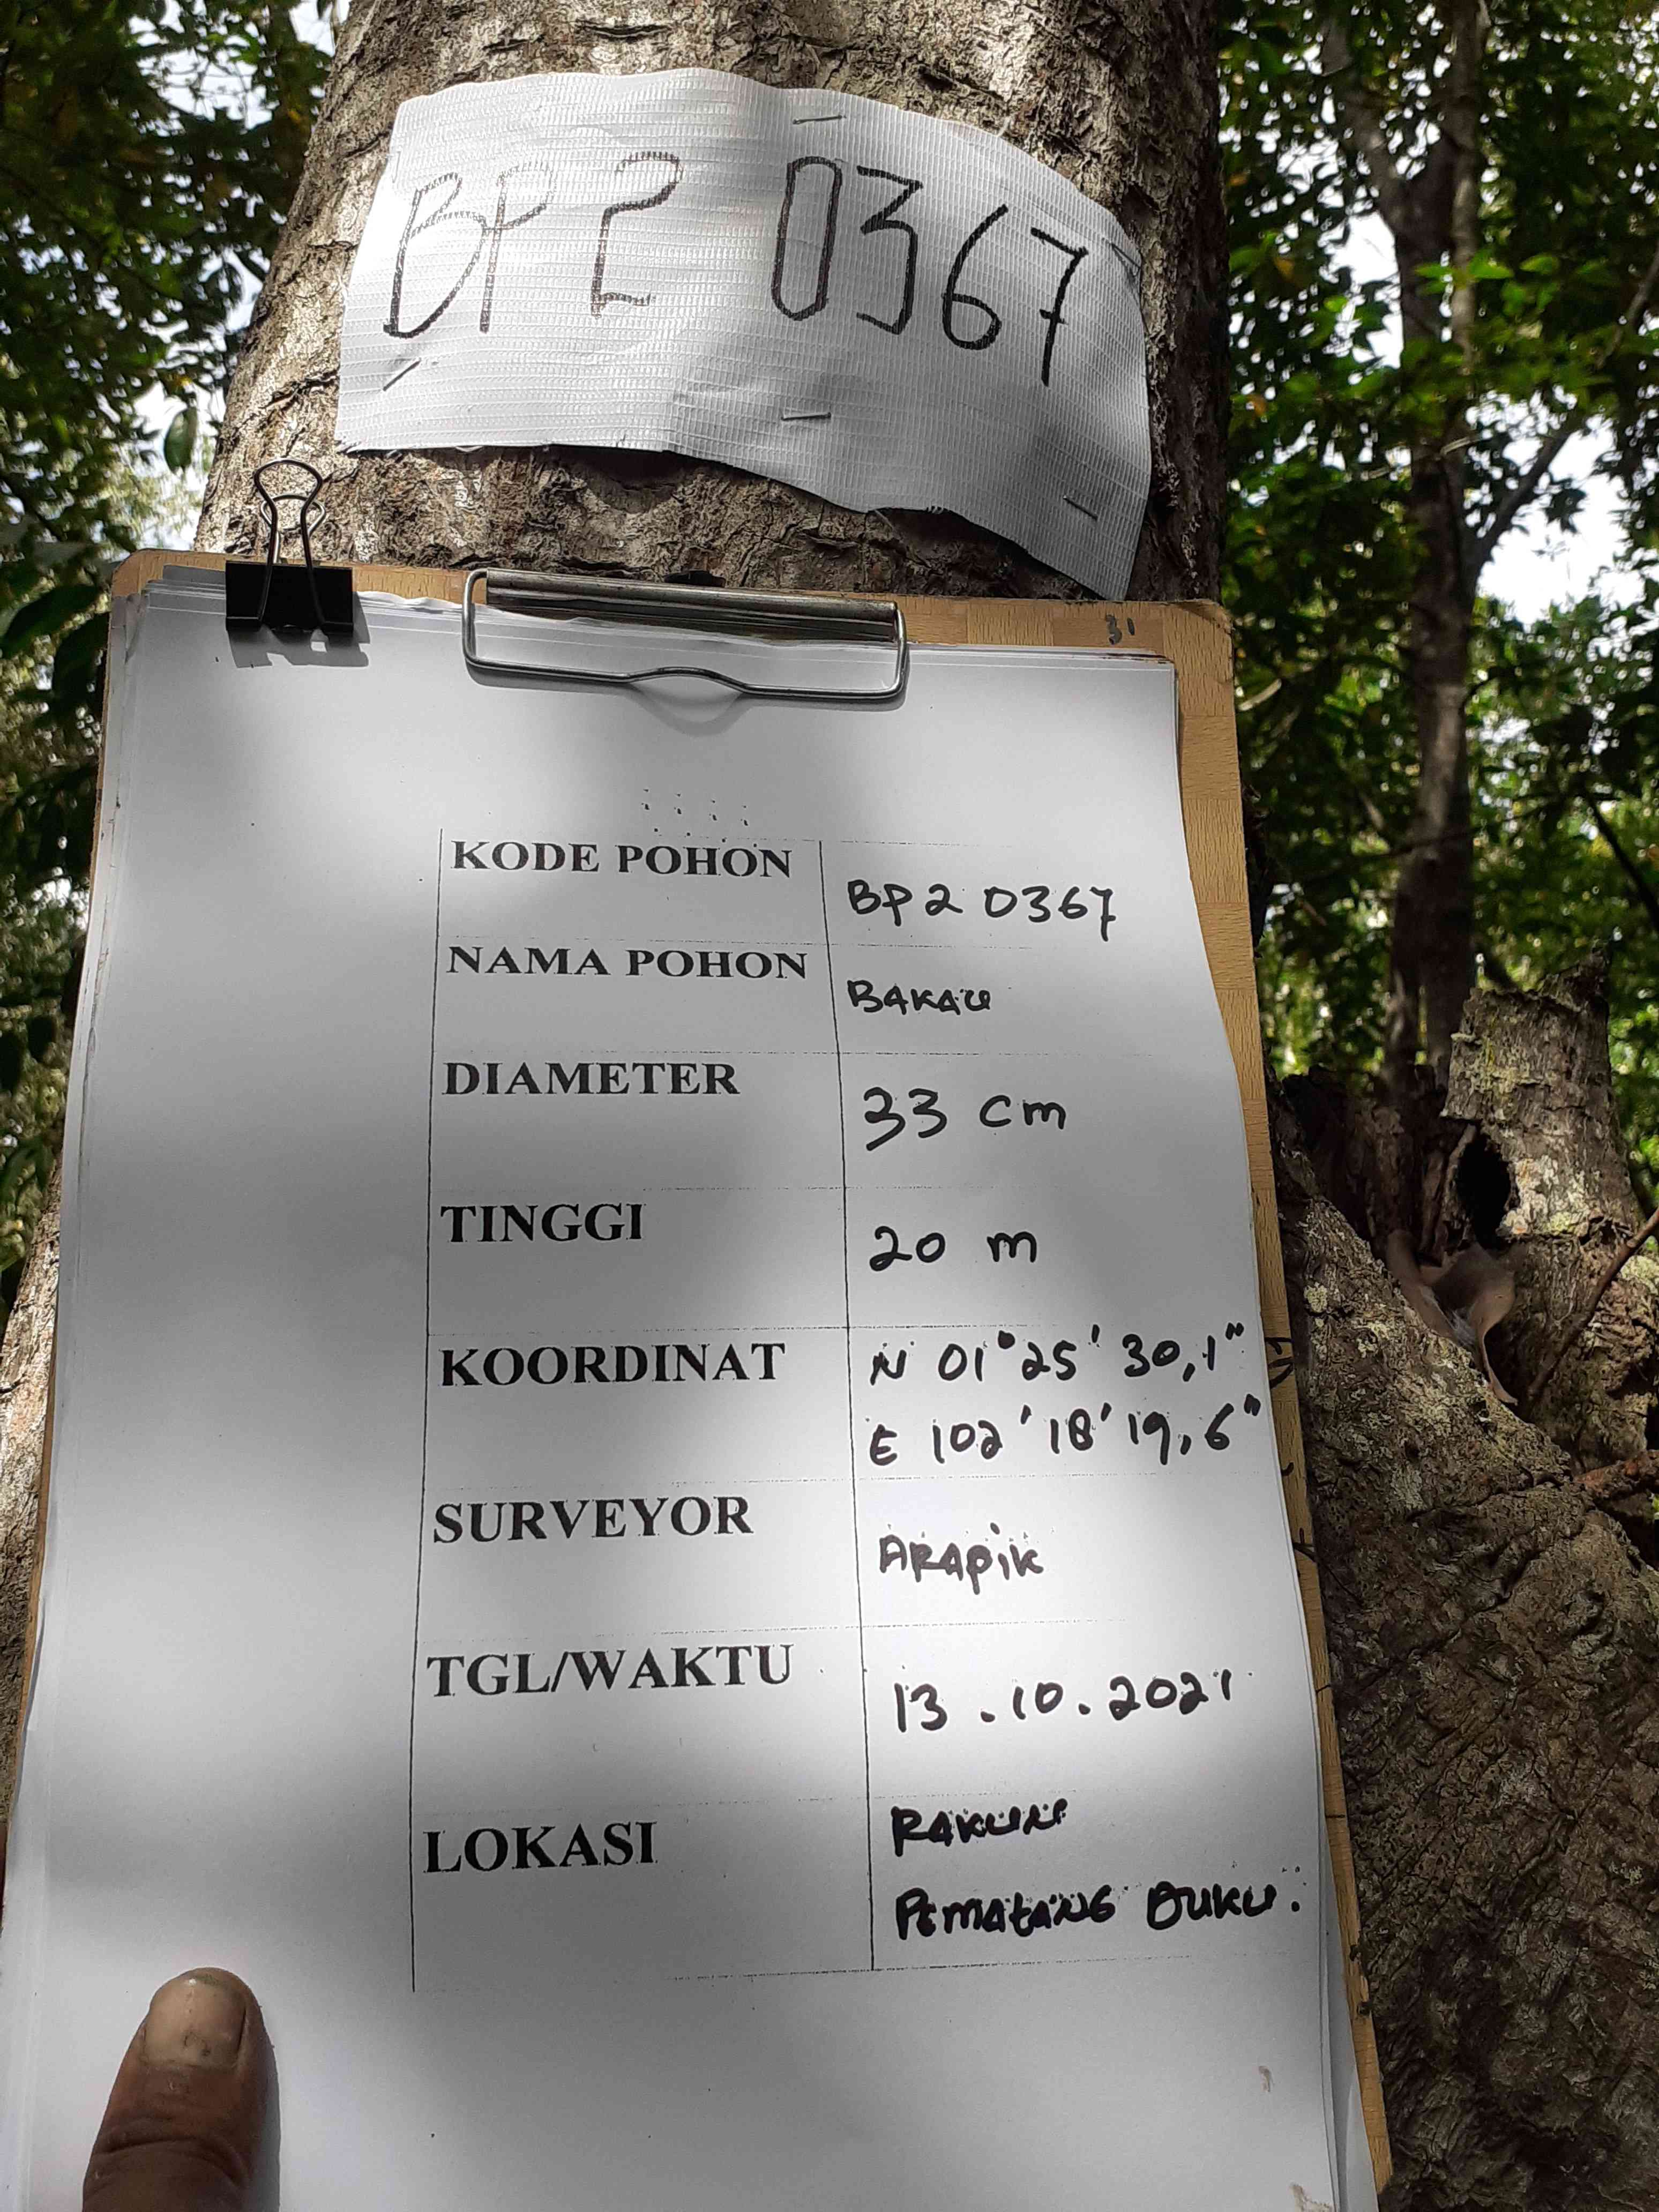 BP2 0367
31
KODE POHON BP2 0367
NAMA POHON BAKAU
DIAMETER 33 cm
TINGGI 20 m
KOORDINAT N 01°25' 30,1"
E 102'18'19,6"
SURVEYOR ARAPIK
TGL/WAKTU 13.10.2021
LOKASI
PEMATANG DUKU.